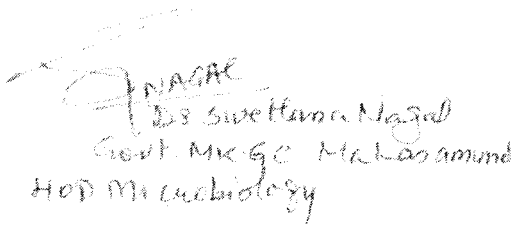 NAGAL
Dr Swethana Nagal
Govt. MKGC Mahasamund
HOD Microbiology